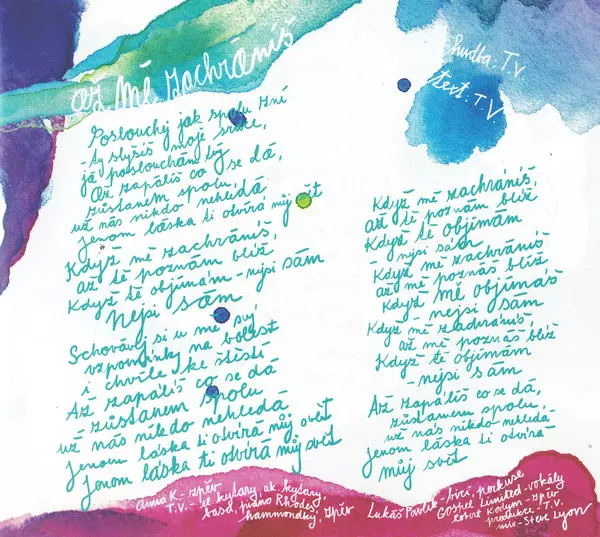 až mě zachráníš
hudba: T.V.
text: T.V
Poslouchej jak spolu zní
- ty slyšíš moje srdce,
já poslouchám tvý
Až zapálíš co se dá,
zůstanem spolu,
už nás nikdo nehledá
jenom láska ti otvírá můj svět
Když mě zachráníš,
až tě poznám blíž
Když tě objímám - nejsi sám
Nejsi sám
Schovávej si u mě svý
vzpomínky na bolest
i chvíle ke štěstí
Až zapálíš co se dá
- zůstanem spolu
už nás nikdo nehledá
Jenom láska ti otvírá můj svět
Jenom láska ti otvírá můj svět
Když mě zachráníš,
až tě poznám blíž
Když tě objímám
- nejsi sám
Když mě zachráníš
až mě poznáš blíž
Když mě objímáš
- nejsi sám
Když mě zachráníš,
až mě poznáš blíž
Když tě objímám
- nejsi sám
Až zapálíš co se dá,
zůstanem spolu,
už nás nikdo nehledá
Jenom láska ti otvírá
můj svět
Anna K. - zpěv
T.V. - el. kytary, ak. kytary,
basa, piano Rhodes,
hammondky, zpěv
Lukáš Pavlík - bicí, perkuse
Gospel Limited - vokály
Robert Kodym - zpěv
produkce - T.V.
mix - Steve Lyon